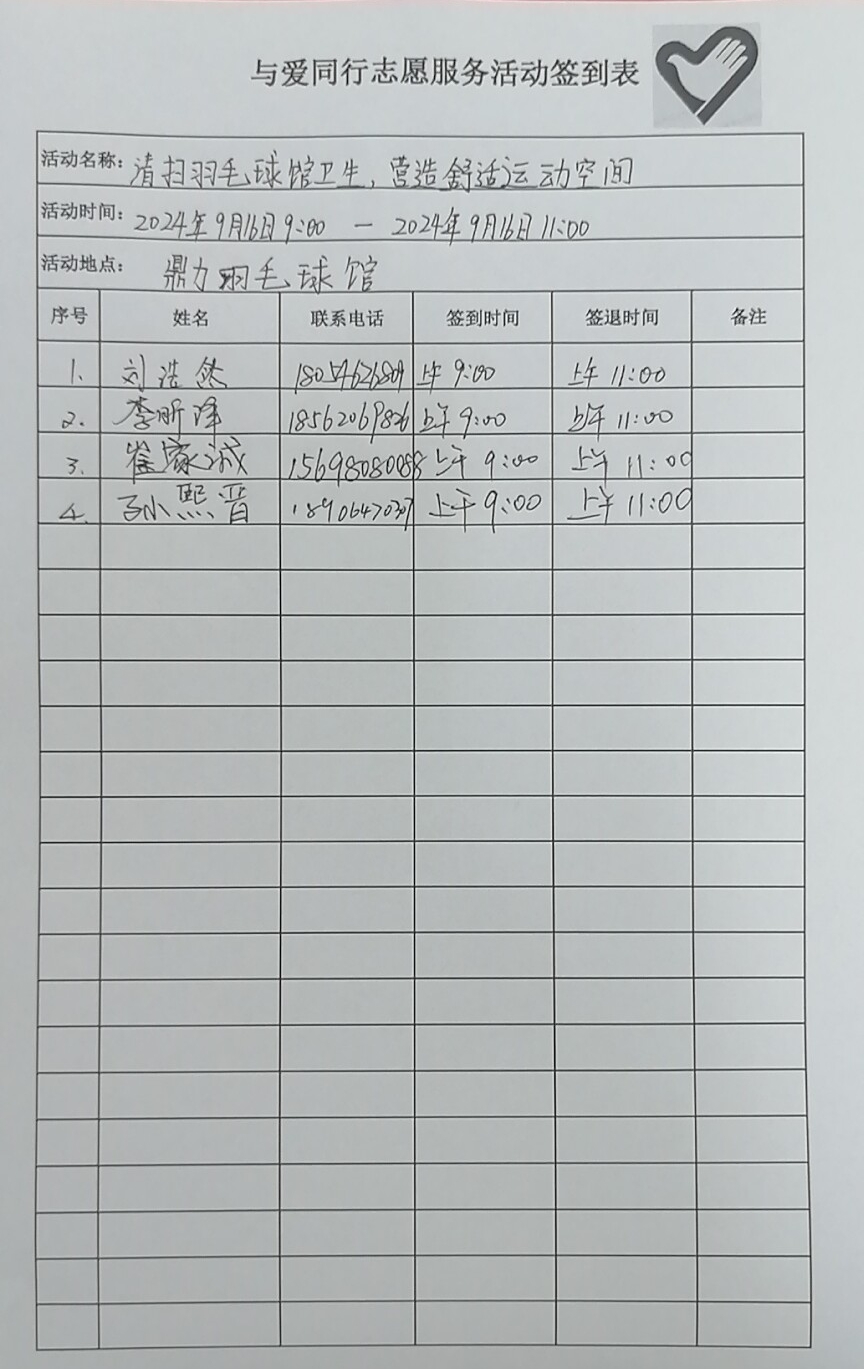 与爱同行志愿服务活动签到表
活动名称: 清扫羽毛球馆卫生,营造舒适运动空间
活动时间: 2024年9月16日9:00 — 2024年9月16日11:00
活动地点: 鼎力羽毛球馆
序号 姓名 联系电话 签到时间 签退时间 备注
1. 刘浩然 18054626809 上午 9:00 上午 11:00
2. 李昕泽 18562069826 上午 9:00 上午 11:00
3. 崔家诚 15698080088 上午 9:00 上午 11:00
4. 孙熙晋 18906470307 上午 9:00 上午 11:00